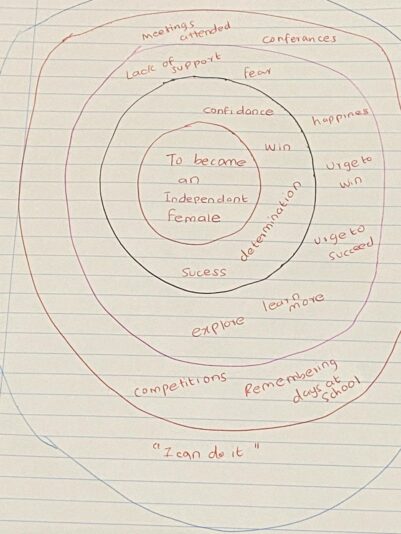 Meetings
attended
conferances
Lack of
support
fear
confidance
happines
win
To become
an
Independant
Female
Urge to
win
determination
Urge to
succeed
sucess
learn
more
explore
competitions
Remembering
days at
school
"I can do it"